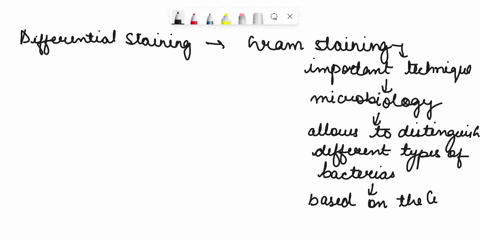 Differential Staining → Gram staining
important technique
microbiology
allows to distinguish
different types of
bacterias
based on the Ce